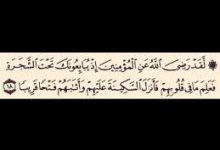 لَّقَدْ رَضِيَ اللَّهُ عَنِ الْمُؤْمِنِينَ إِذْ يُبَايِعُونَكَ تَحْتَ الشَّجَرَةِ
فَعَلِمَ مَا فِي قُلُوبِهِمْ فَأَنزَلَ السَّكِينَةَ عَلَيْهِمْ وَأَثَابَهُمْ فَتْحًا قَرِيبًا ١٨